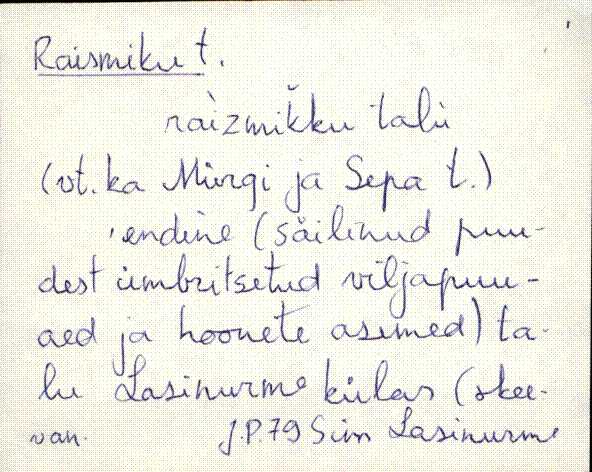 Raismiku t.
raìzmik̆ku talu
(vt. ka Mürgi ja Sepa t.)
endine (säilinud puu-
dest ümbritsetud viljapuu-
aed ja hoonete asemed) ta-
lu Lasinurme külas (skee-
van. J.P.79 Sim Lasinurme